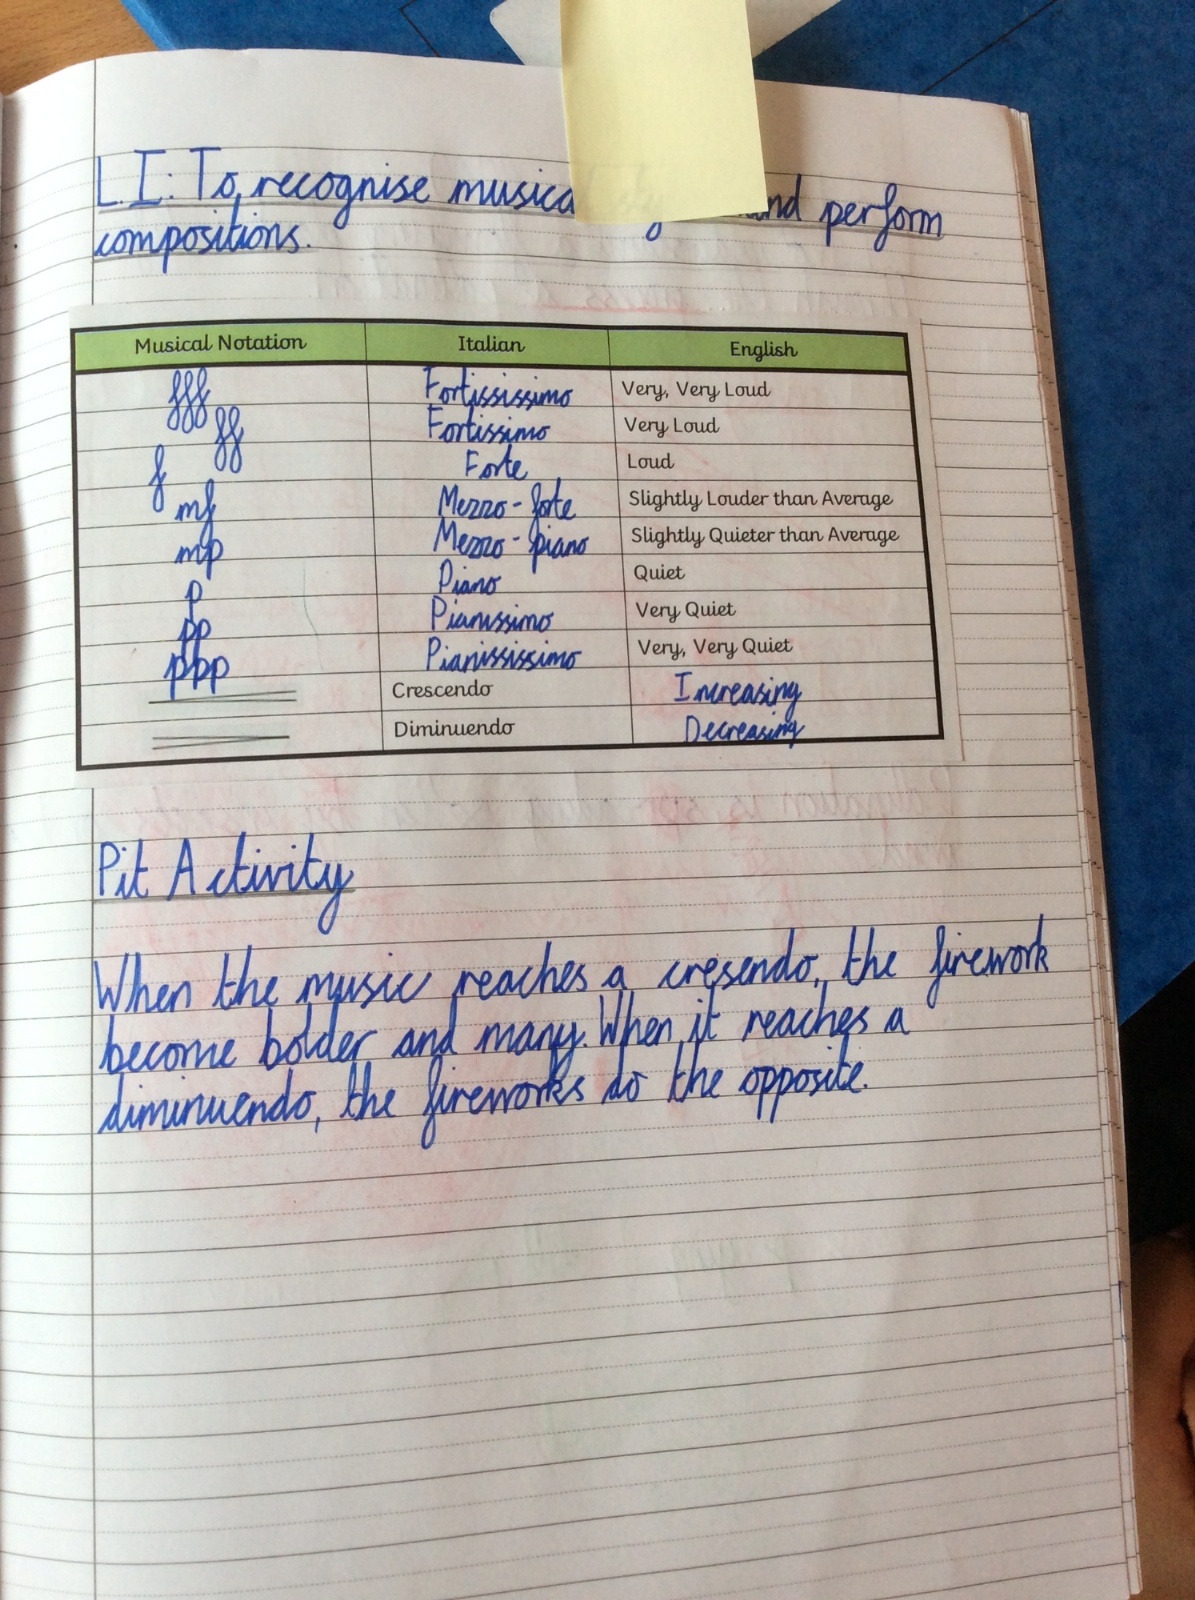 L.I: To recognise musica and perform
compositions.
Musical Notation Italian English
fff Fortississimo Very, Very Loud
ff Fortissimo Very Loud
f Forte Loud
mf Mezzo-forte Slightly Louder than Average
mp Mezzo-piano Slightly Quieter than Average
p Piano Quiet
pp Pianissimo Very Quiet
ppp Pianississimo Very, Very Quiet
Crescendo Increasing
Diminuendo Decreasing
Pit Activity
When the music reaches a cresendo, the firework
become bolder and many. When it reaches a
diminuendo, the fireworks do the opposite.